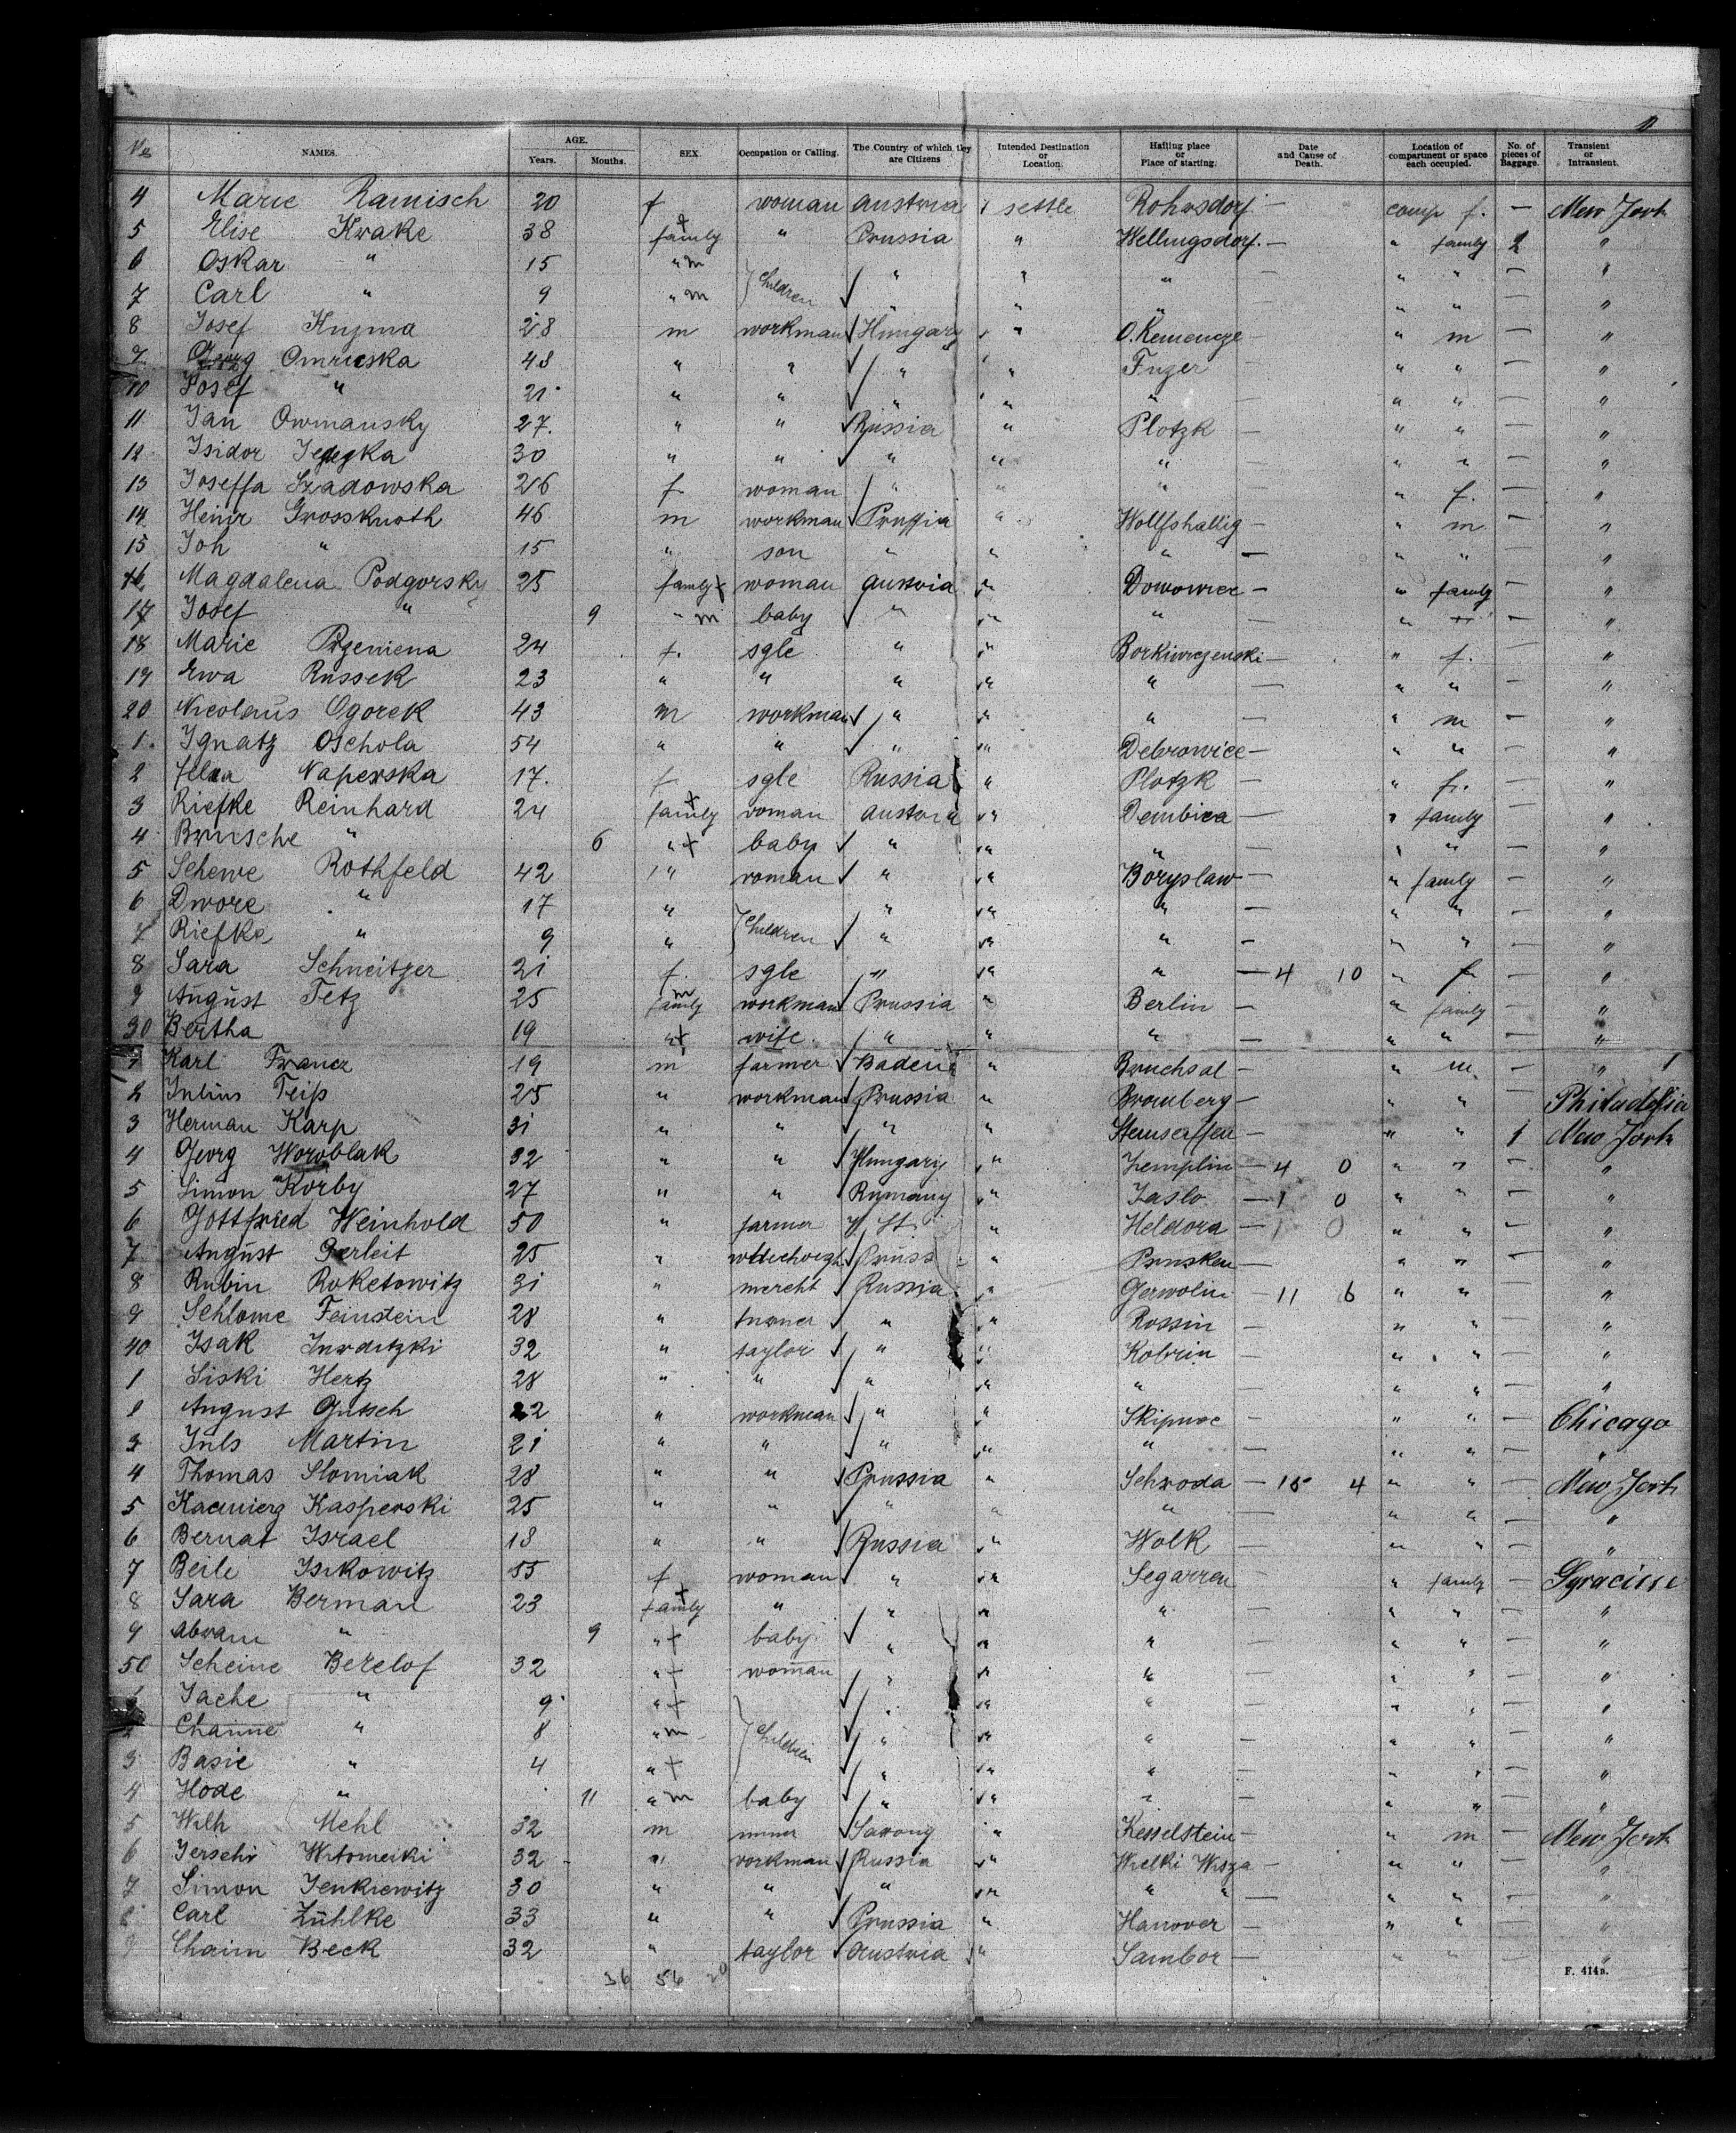 No NAMES. AGE. Years. Months. SEX. Occupation or Calling. The Country of which they are Citizens Intended Destination or Location. Hailing place or Place of starting. Date and Cause of Death. Location of compartment or space each occupied. No. of pieces of Baggage. Transient or Intransient.
4 Marie Ramisch 20 f woman Austria settle Rohrsdorf — comp f. — New York
5 Elise Krake 38 family " Prussia " Wellingsdorf — " family 2 "
6 Oskar " 15 " m Children " " " — " " — "
7 Carl " 9 " m " " " — " " — "
8 Josef Kuzma 28 m workman Hungary " O. Kemencze — " m — "
9 Georg Omruska 48 " " " " Fuzer — " " — "
10 Josef " 21 " " " " " — " " — "
11 Jan Owmansky 27. " " Russia " Plotzk — " " — "
12 Isidor 30 " " " " " — " " — "
13 Joseffa Szadowska 26 f. woman " " " — " f. — "
14 Heinr Grossknoth 46 m workman Prussia " Wolfshallig — " m — "
15 Joh " 15 " son " " " — " " — "
16 Magdalena Podgorsky 25 family woman Austria " Dowowice — " family — "
17 Josef " 9 " m baby " " " — " " — "
18 Marie Przeniena 24 f. sgle " " — " f. — "
19 Ewa Russek 23 " " " " " — " " — "
20 Nicolaus Ogorek 43 m workman " " " — " m — "
1. Ignatz Oschola 54 " " " " Debrowice — " " — "
2 Naperska 17. f sgle Russia " Plotzk — " f. — "
3 Riefke Reinhard 24 family woman Austria " Dembica — " family — "
4 Brusche " 6 " baby " " " — " " — "
5 Schewe Rothfeld 42 " woman " " Boryslaw — " family — "
6 Dwore " 17 " Children " " " — " " — "
7 Riefke " 9 " " " " — " " — "
8 Sara Schneitzer 21 f. sgle " " " — 4 10 " f — "
9 August Tetz 25 family m workman Prussia " Berlin — " family — "
30 Bertha 19 " wife " " " — " " — "
1 Karl Francz 19 m farmer Baden " Bruchsal — " m — " 1
2 Julius Teiß 25 " workman Prussia " Bromberg — " " — Philadelfia
3 Herman Karp 31 " " " " — " " 1 New York
4 Georg Woroblak 32 " " Hungary " Zemplin — 4 0 " " — "
5 Simon Korby 27 " " Rumany " Jaslo — 1 0 " " — "
6 Gottfried Weinhold 50 " farmer U St " Heldora — 1 0 " " — "
7 August Gerleit 25 " Pruss " Prusken — " " — "
8 Rubin Roketowitz 31 " mercht Russia " Gerwolin — 11 6 " " — "
9 Schlome Feinstein 28 " turner " " Rossin — " " — "
40 Isak 32 " taylor " " Kobrin — " " — "
1 Siski Hertz 28 " " " " " — " " — "
2 August Gutsch 22 " workman " " — " " — Chicago
3 Juls Martin 21 " " " " " — " " — "
4 Thomas Slomiak 28 " " Prussia " Schroda — 15 4 " " — New York
5 Kacmierz Kasperski 25 " " " " " — " " — "
6 Bernat Israel 18 " " Russia " Wolk — " " — "
7 Beile Isikowitz 55 f woman " " Segarren — " family — Syracisse
8 Sara Berman 23 family " " " " — " " — "
9 Abram " 9 " baby " " " — " " — "
50 Scheine Berelof 32 " woman " " " — " " — "
1 Jache " 9 " Children " " " — " " — "
2 Channe " 8 " m " " " — " " — "
3 Basie " 4 " " " " — " " — "
4 Hode " 11 " m baby " " " — " " — "
5 Wilh Mehl 32 m miner Saxony " Kesselstein — " m — New York
6 Witomeiki 32 " workman Russia " Wielki Wisza — " " — "
7 Simon Jenkiewitz 30 " " " " " " — " " — "
8 Carl Zühlke 33 " " Prussia " Hanover — " " — "
9 Chaim Beck 32 " taylor Austria " Sambor — " " — "
36 56 20
F. 414a.